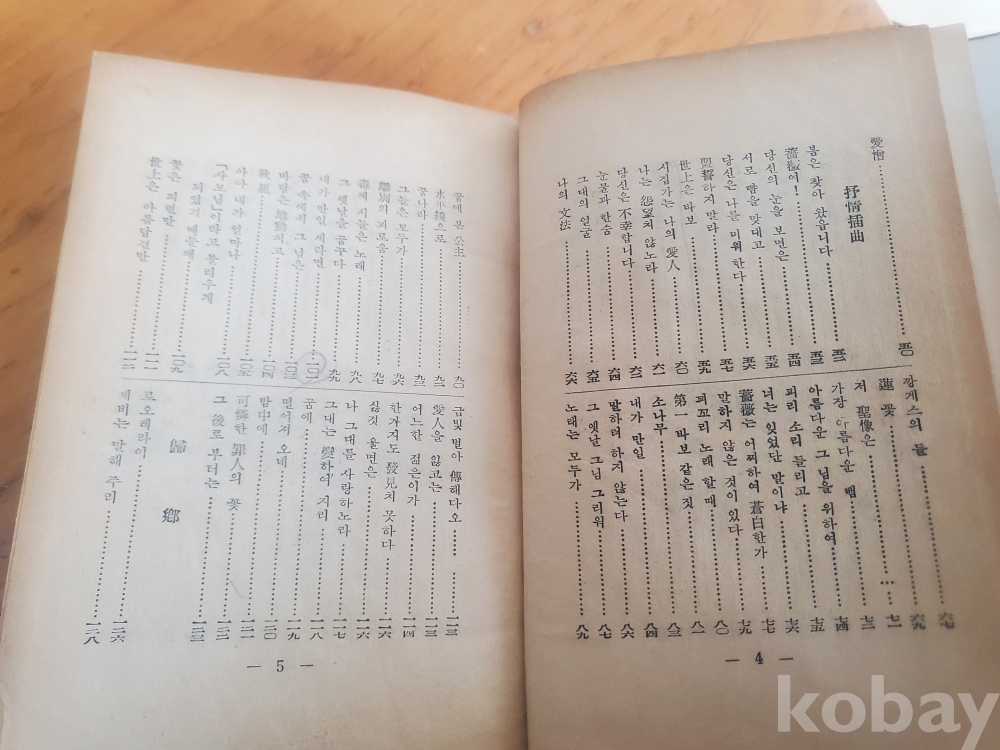 愛憎……五〇
抒情揷曲
봄은 찾아 왔읍니다……五二
薔薇여!……五三
당신의 눈을 보면은……五四
서로 뺨을 맞대고……五五
당신은 나를 미워 한다……五六
盟誓하지 말라……五七
世上은 바보……五九
시집가는 나의 愛人……六〇
나는 怨望치 않노라……六一
당신은 不幸합니다……六二
눈물과 한숨……六四
그대의 얼굴……六五
나의 文法……六六
깡게스의 들……六七
蓮 꽃……六九
저 聖像은……七一
가장 아름다운 뺨……七二
아름다운 그님을 위하여……七四
피리 소리 들리고……七五
너는 잊었단 말이냐……七六
薔薇는 어찌하여 蒼白한가……七七
말하지 않은 것이 있다……七九
꾀꼬리 노래 할때……八〇
第一 바보 같은짓……八一
소나무……八三
내가 만일……八四
말하려 하지 않는다……八六
그 옛날 그님 그리워……八七
노래는 모두가……八九
— 4 —
꿈에 본 公主……九〇
水平線으로……九二
꿈나라……九三
그들은 모두가……九六
離別의 괴로움……九七
毒에 시들은 노래……九八
그 옛날을 꿈꾸다……九九
내가 만인 새라면……一〇一
꿈 속에서 그 님은……一〇三
바람은 地動치고……一〇四
秋風……一〇五
아아 내가 얼마나……一〇八
「사모님」이라고 불리우게
되었기 때문에……一〇九
꽃은 피련만……一一一
世上은 아름답건만……一一二
금빛 별아 傳해다오……一一三
愛人을 잃고는……一一三
어느한 젊은이가……一一四
한가지도 發見치 못하다……一一六
싫것 울면은……一一六
나 그대를 사랑하노라……一一七
그대는 變하여 지리……一一八
꿈에……一一九
떨어져 오네……一二〇
밤中에……一二一
可憐한 罪人의 꽃……一二二
그 後로부터는……一二三
歸鄕
로오레라이……一二六
제비는 말해 주리……一二八
— 5 —
kobay